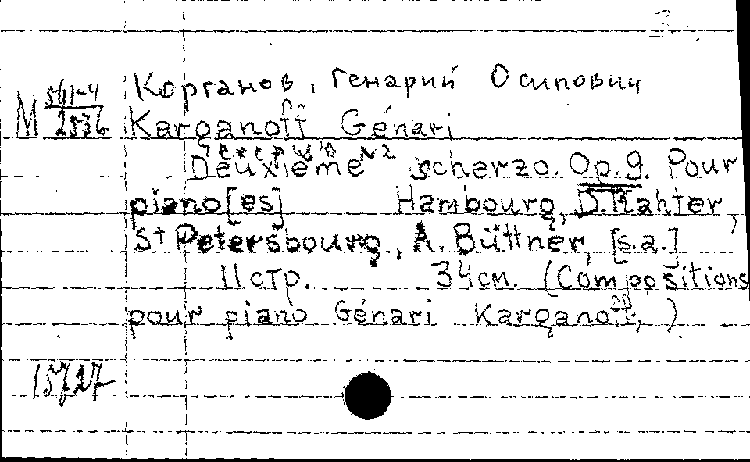 3
Корганов, Генарий Осипович
М 561-4
2536
Karganoff Génari
Deuxième scherzo. Op. 9. Pour
piano[es] Hambourg, D. Rahter,
St Petersbourg, A. Büttner, [s.a.]
11 стр. 34 см. (Compositions
pour piano Génari Karganoff, )
15727